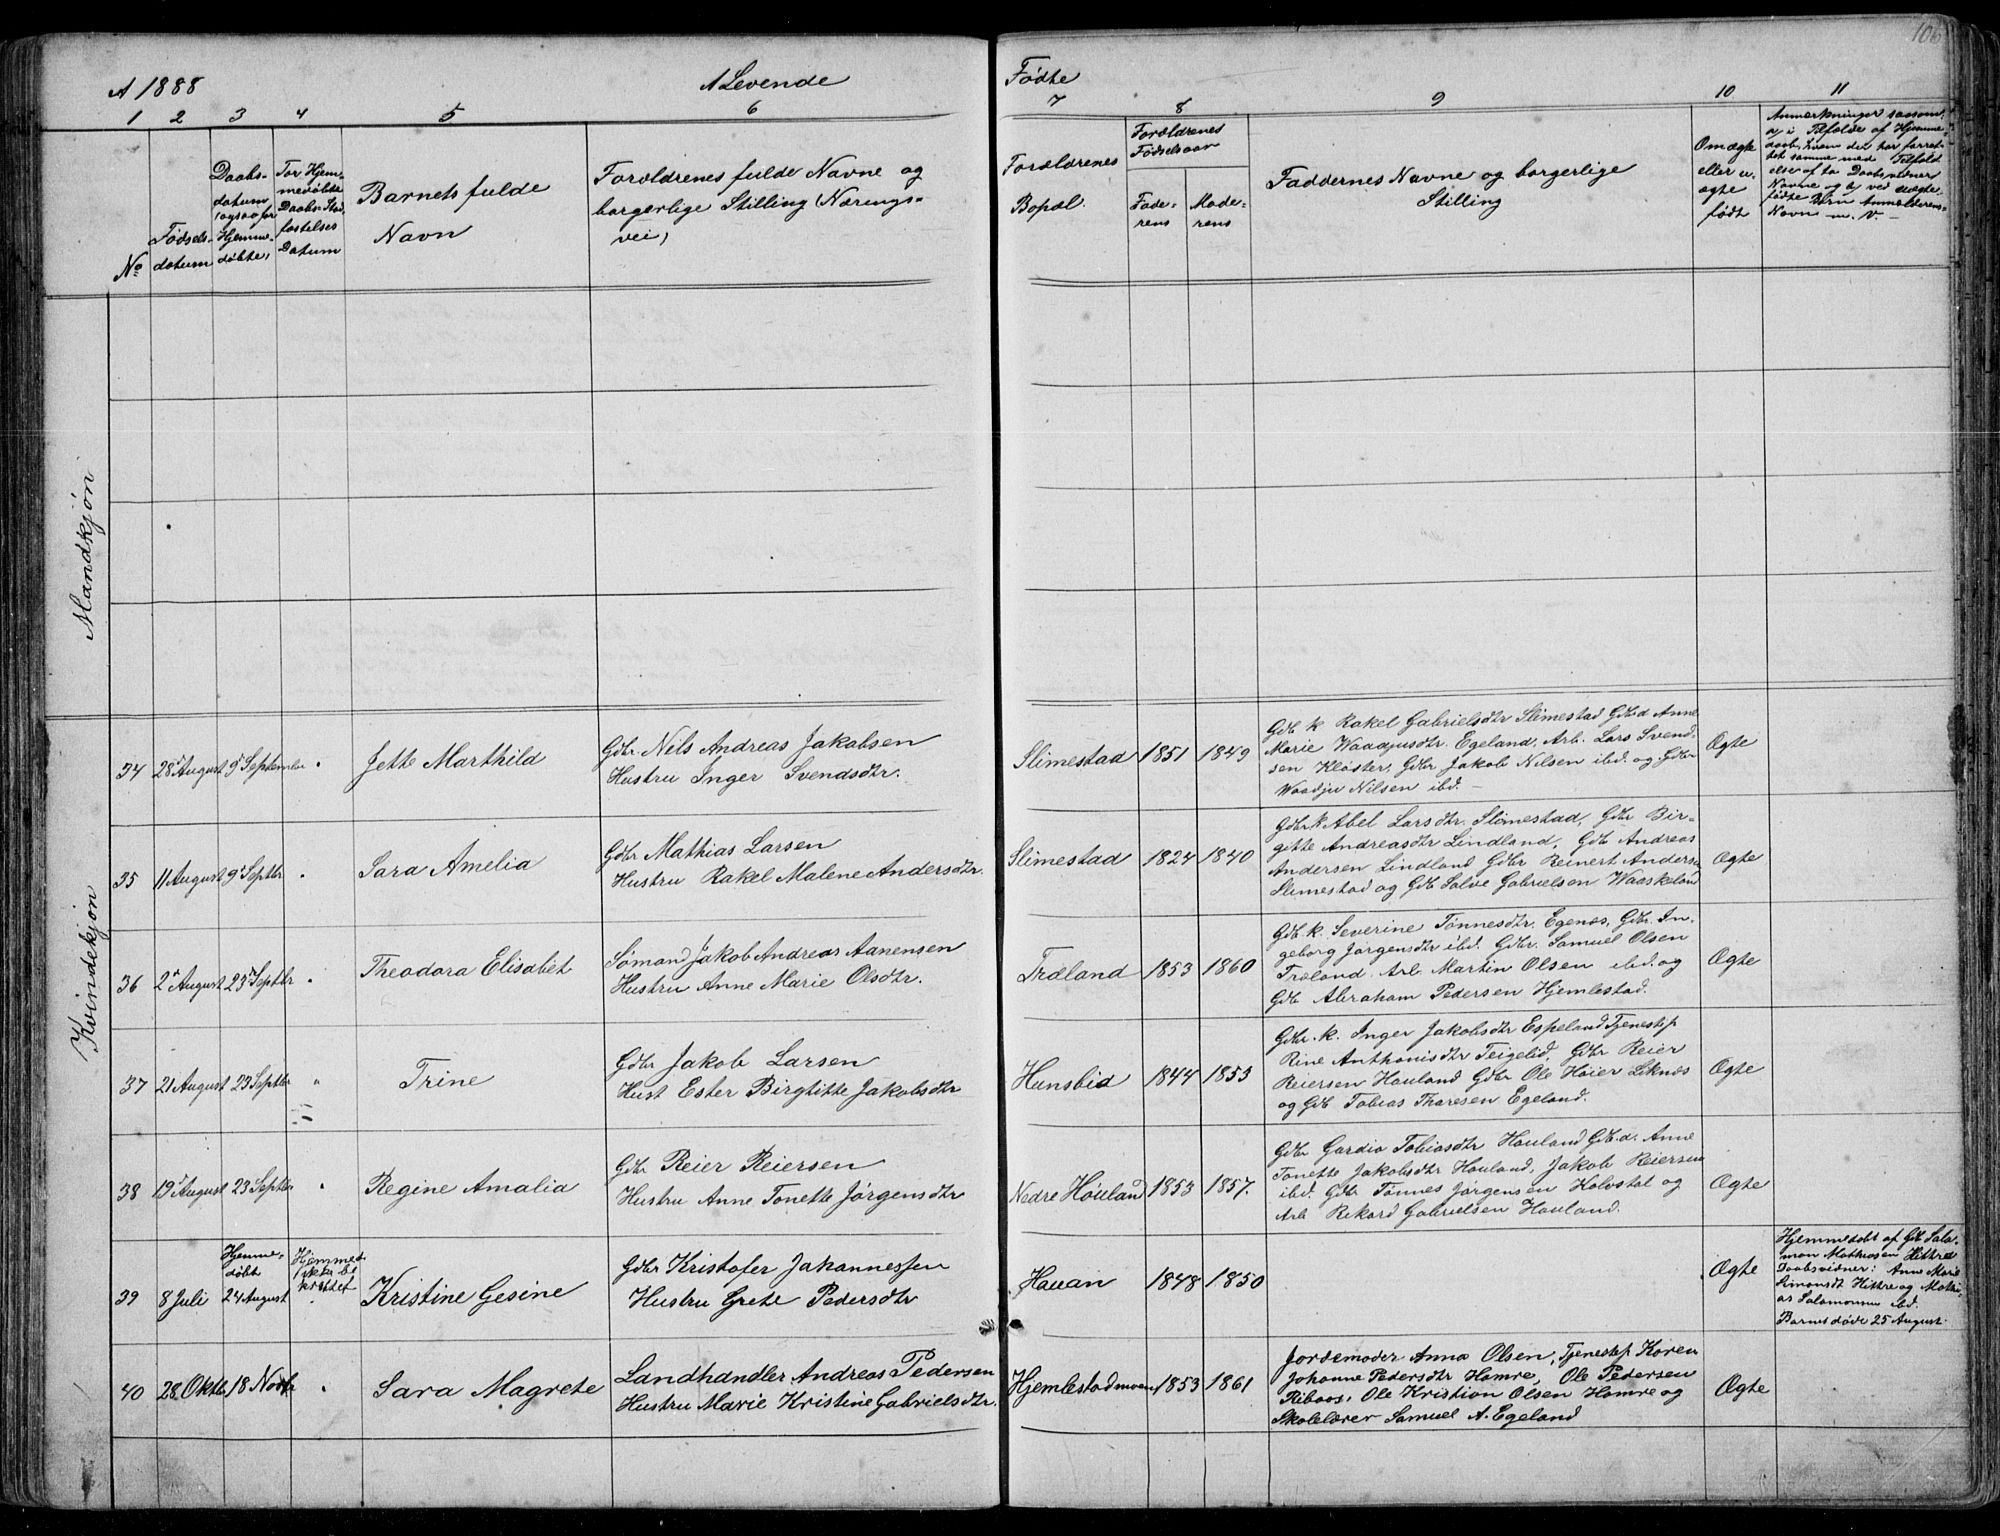 106
A 1888
Levende
Fødte
1 2 3 4 5 6 7 8 9 10 11
No
Fødsels-
datum
Daabs-
datum
(ogsaa for
Hjemme-
døbte)
For Hjem-
medøbte
Daabs Stad-
fæstelses
Datum
Barnets fulde
Navn
Forældrenes fulde Navne og
borgerlige Stilling (Nærings-
vei)
Forældrenes
Bopæl.
Forældrenes
Fødselsaar
Fade-
rens
Mode-
rens
Faddernes Navne og borgerlige
Stilling
Om ægte
eller u-
ægte
født
Anmærkninger saasom
a, i Tilfælde af Hjemme-
daab, hvem der har forret-
tet samme med Tilføi-
else af to Daabsvidners
Navne og b, ved uægte
fødte Børn Anmelderens
Navn m. v. -
Mandkjøn
Kvindekjøn
34 28 August 9 September " Jette Marthild
Gdbr. Nils Andreas Jakobsen
Hustru Inger Svendsdtr.
Slimestad 1851 1849
Gdb. k. Rakel Gabrielsdtr Slimestad Gdb.d Anne
Marie Waadjusdtr. Egeland, Arb. Lars Svend-
sen Kloster, Gdbr Jakob Nilsen ibd. og Gdbr
Waadju Nilsen ibd. -
Ægte
35 11 August 9 Septbr " Sara Amelia
Gdbr Mathias Larsen
Hustru Rakel Malene Andersdtr.
Slimestad 1824 1840
Gdbr k Abel Larsdtr. Slimestad, Gdbr Bir-
gitte Andreasdtr Lindland, Gdb Andreas
Andersen Lindland Gdbr Reinert Andersen
Slimestad og Gdb Salve Gabrielsen Waaskeland
Ægte
36 2 August 23 Septbr " Theodora Elisabet
Sømand Jakob Andreas Aanensen
Hustru Anne Marie Olsdtr.
Træland 1853 1860
Gdb. k. Severine Tønnesdtr. Egenæs, Gdbr. In-
geborg Jørgensdtr ibd. Gdbr. Samuel Olsen
Træland Arb. Martin Olsen ibd. og
Gdb Abraham Pedersen Hjemlestad.
Ægte
37 21 August 23 Septbr " Trine
Gdbr Jakob Larsen
Hust Ester Birgitte Jakobsdtr
Hunsbid 1844 1853
Gdbr. k. Inger Jakobsdtr Espeland Tjenestep
Rine Anthonisdtr Teigelid, Gdbr Reier
Reiersen Houland Gdbr Ole Høier Liknæs
og Gdb Tobias Tharesen Egeland.
Ægte
38 19 August 23 Septbr " Regine Amalia
Gdbr Reier Reiersen
Hustru Anne Tonette Jørgensdtr
Nedre Høuland 1853 1857.
Gdbr Gardia Tobiasdtr Houland Gdb. d. Anne
Tonette Jakobsdtr Houland, Jakob Reiersen
ibd. Gdbr Tønnes Jørgensen Kolvstal og
Arb Rekard Gabrielsen Houland.
Ægte
39 8 Juli
Hjemme-
døbt
24 August
Hjemmed.
ikke be
kræftet
Kristine Gesine
Gdbr Kristofer Johannessen
Hustru Grete Pedersdtr
Hauan 1848 1850
Ægte
Hjemmedøbt af Gdb Salo-
mon Mathiasen Hittrø
Daabsvidner: Anne Marie
Simonsdt Hittrø og Mathi-
as Salomonsen ibd.
Barnet døde 25 August.
40 28 Oktbr 18 Novbr " Sara Magrete
Landhandler Andreas Pedersen
Hustru Marie Kristine Gabrielsdtr.
Hjemlestadmoen 1853 1861
Jordemoder Anna Olsen, Tjenestep Karen
Johanne Pedersdtr Hamre, Ole Pedersen
Riboos, Ole Kristian Olsen Hamre og
Skolelærer Samuel A. Egeland
Ægte